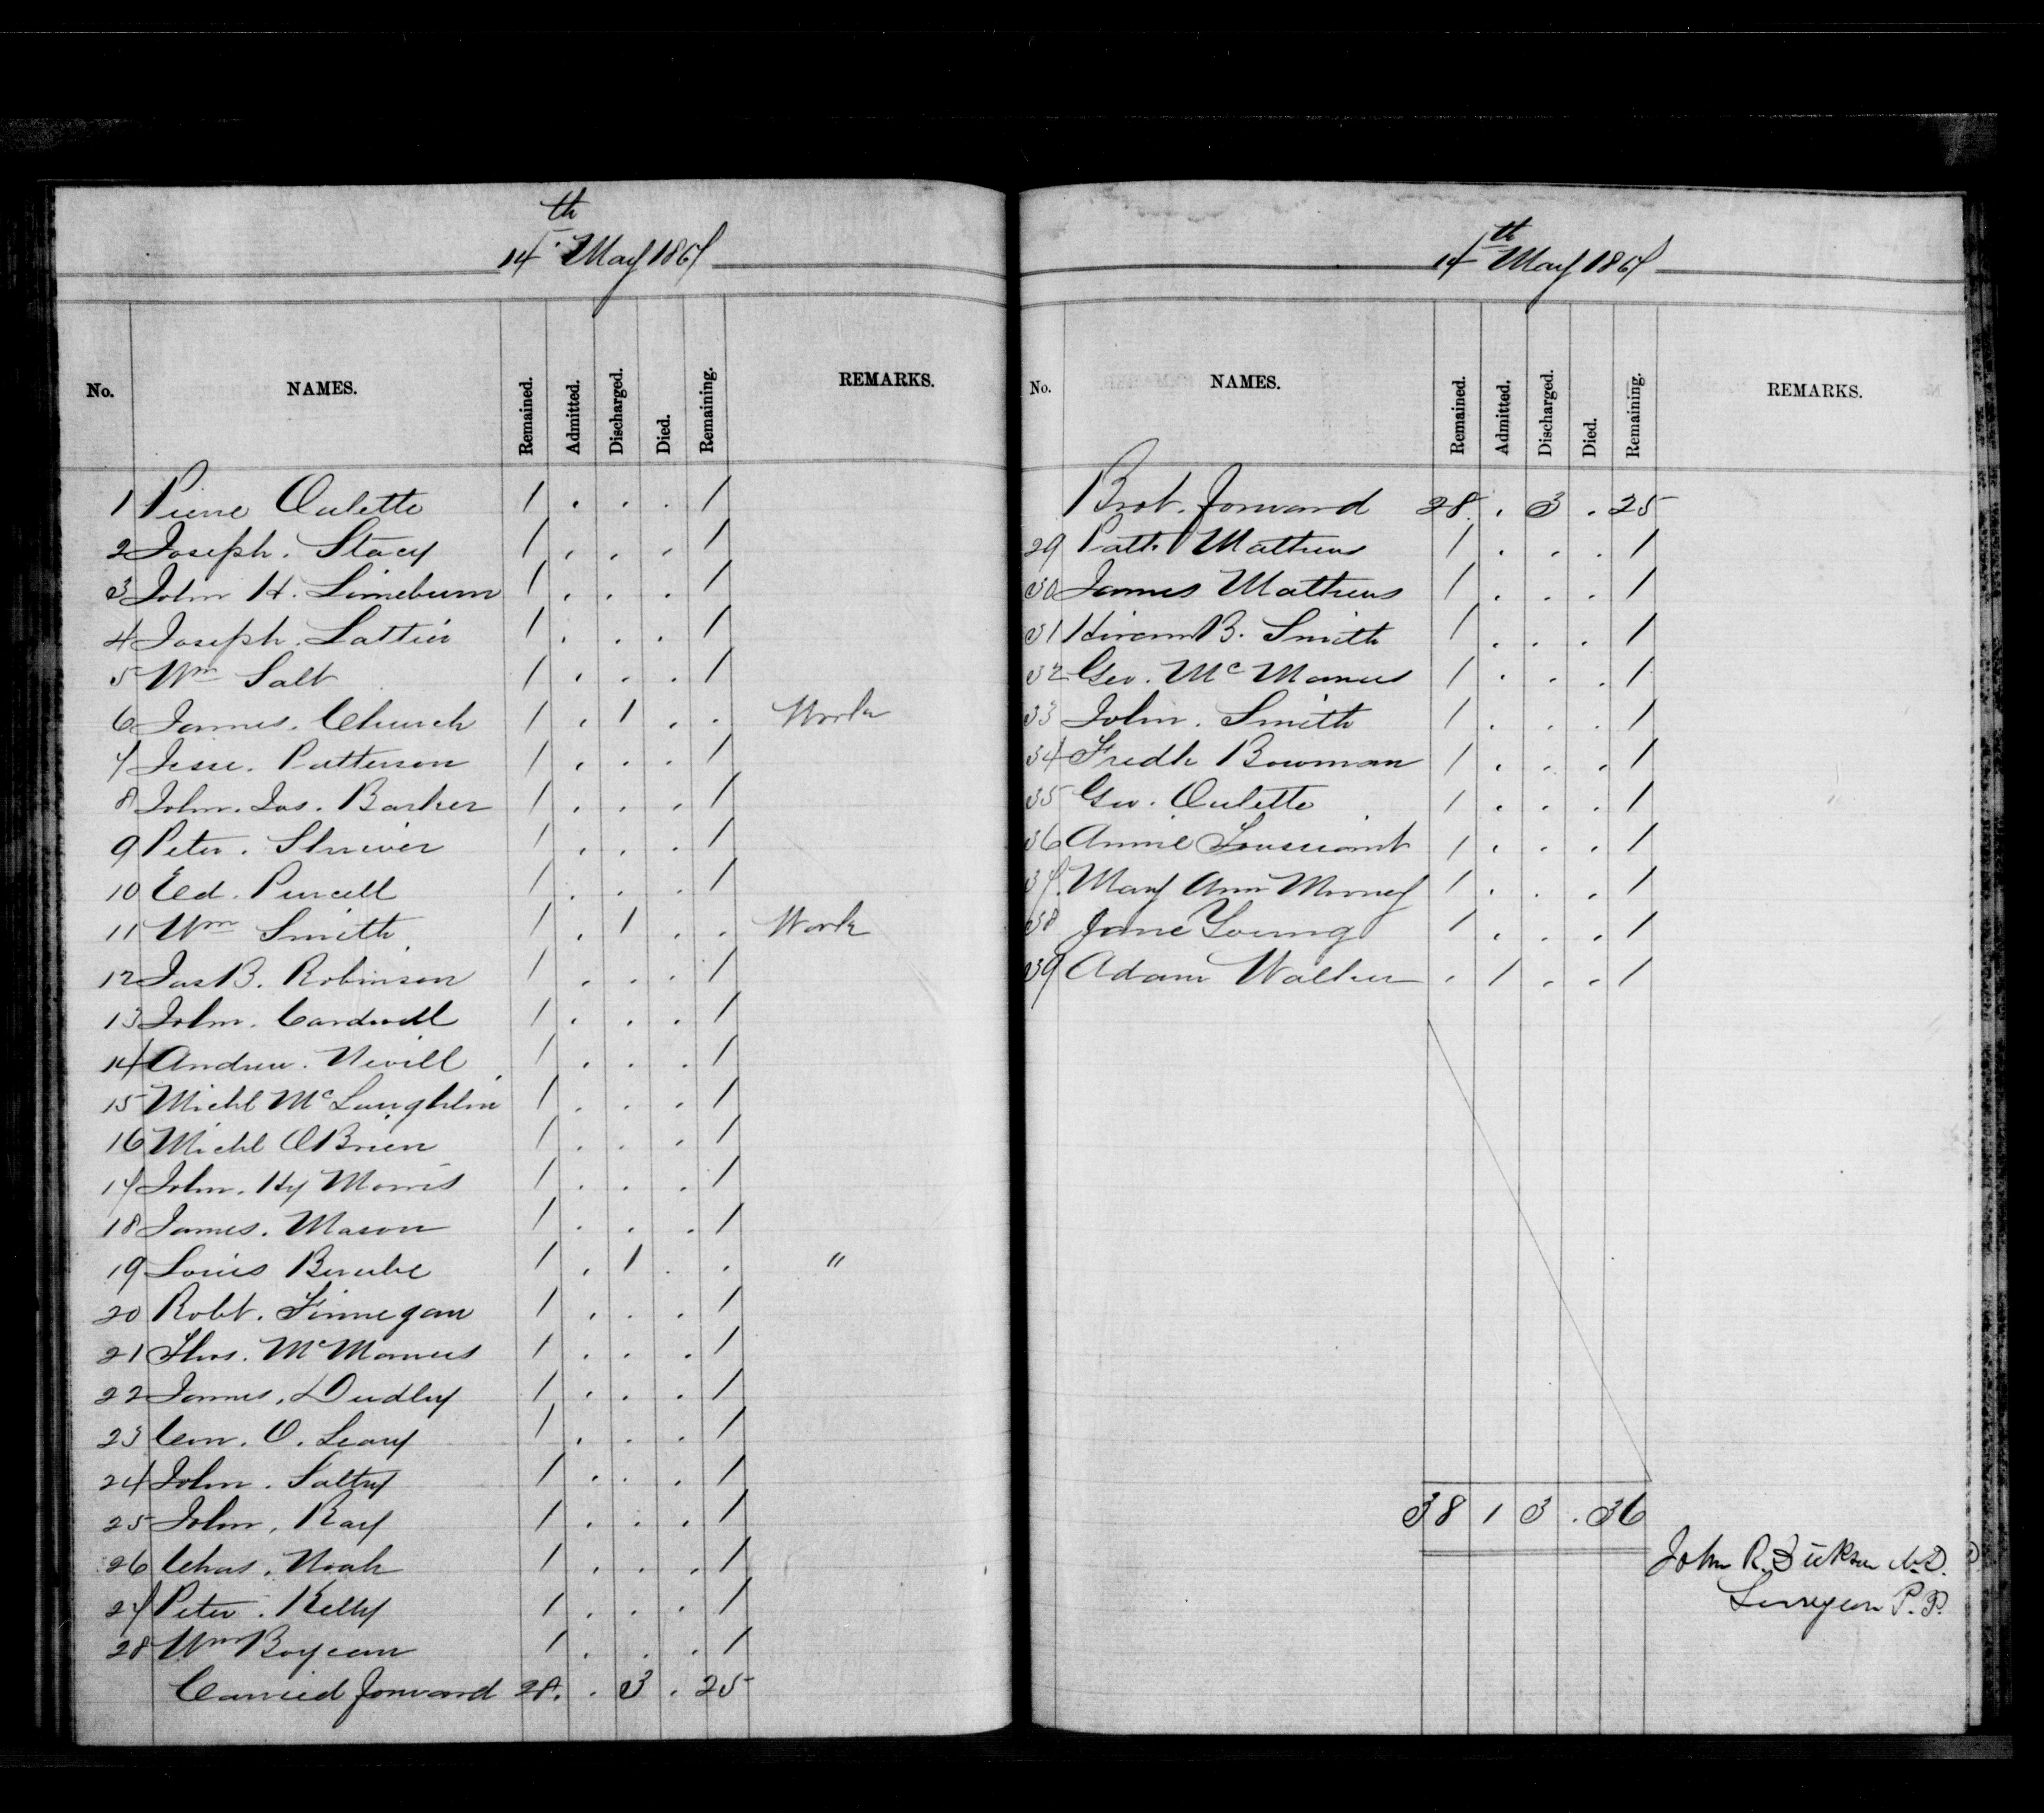 14th May 1867
No. NAMES. Remained. Admitted. Discharged. Died. Remaining. REMARKS.
1 Pierre Oulette 1 . . . 1
2 Joseph. Stacy 1 . . . 1
3 John H. Limeburn 1 . . . 1
4 Joseph. Lattier 1 . . . 1
5 Wm Salt 1 . . . 1
6 James. Church 1 . 1 . . Work
7 Jesse. Patterson 1 . . . 1
8 John. Jas. Barker 1 . . . 1
9 Peter. Shriver 1 . . . 1
10 Ed. Purcell 1 . . . 1
11 Wm Smith 1 . 1 . . Work
12 Jas B. Robinson 1 . . . 1
13 John. Cardwell 1 . . . 1
14 Andrew. Nevill 1 . . . 1
15 Michl McLaughlin 1 . . . 1
16 Michl OBrien 1 . . . 1
17 John. Hy Morris 1 . . . 1
18 James. Mason 1 . . . 1
19 Louis Berube 1 . 1 . . "
20 Robt. Finnegan 1 . . . 1
21 Thos. McManus 1 . . . 1
22 James. Dudley 1 . . . 1
23 Corn. O. Leary 1 . . . 1
24 John. Saltry 1 . . . 1
25 John. Ray 1 . . . 1
26 Chas. Noah 1 . . . 1
27 Peter. Kelly 1 . . . 1
28 Wm 1 . . . 1
Carried forward 28. . 3 . 25
14th May 1867
No. NAMES. Remained. Admitted. Discharged. Died. Remaining. REMARKS.
Brot. forward 28 . 3 . 25
29 Patt. Mathews 1 . . . 1
30 James Mathews 1 . . . 1
31 Hiram B. Smith 1 . . . 1
32 Geo. McManus 1 . . . 1
33 John. Smith 1 . . . 1
34 Fredk Bowman 1 . . . 1
35 Geo. Oulette 1 . . . 1
36 Annie Toussaint 1 . . . 1
37. Mary Ann Mooney 1 . . . 1
38 Jane Young 1 . . . 1
39 Adam Walker . 1 . . 1
38 1 3 . 36
John R. Dickson M.D.
Surgeon P.P.